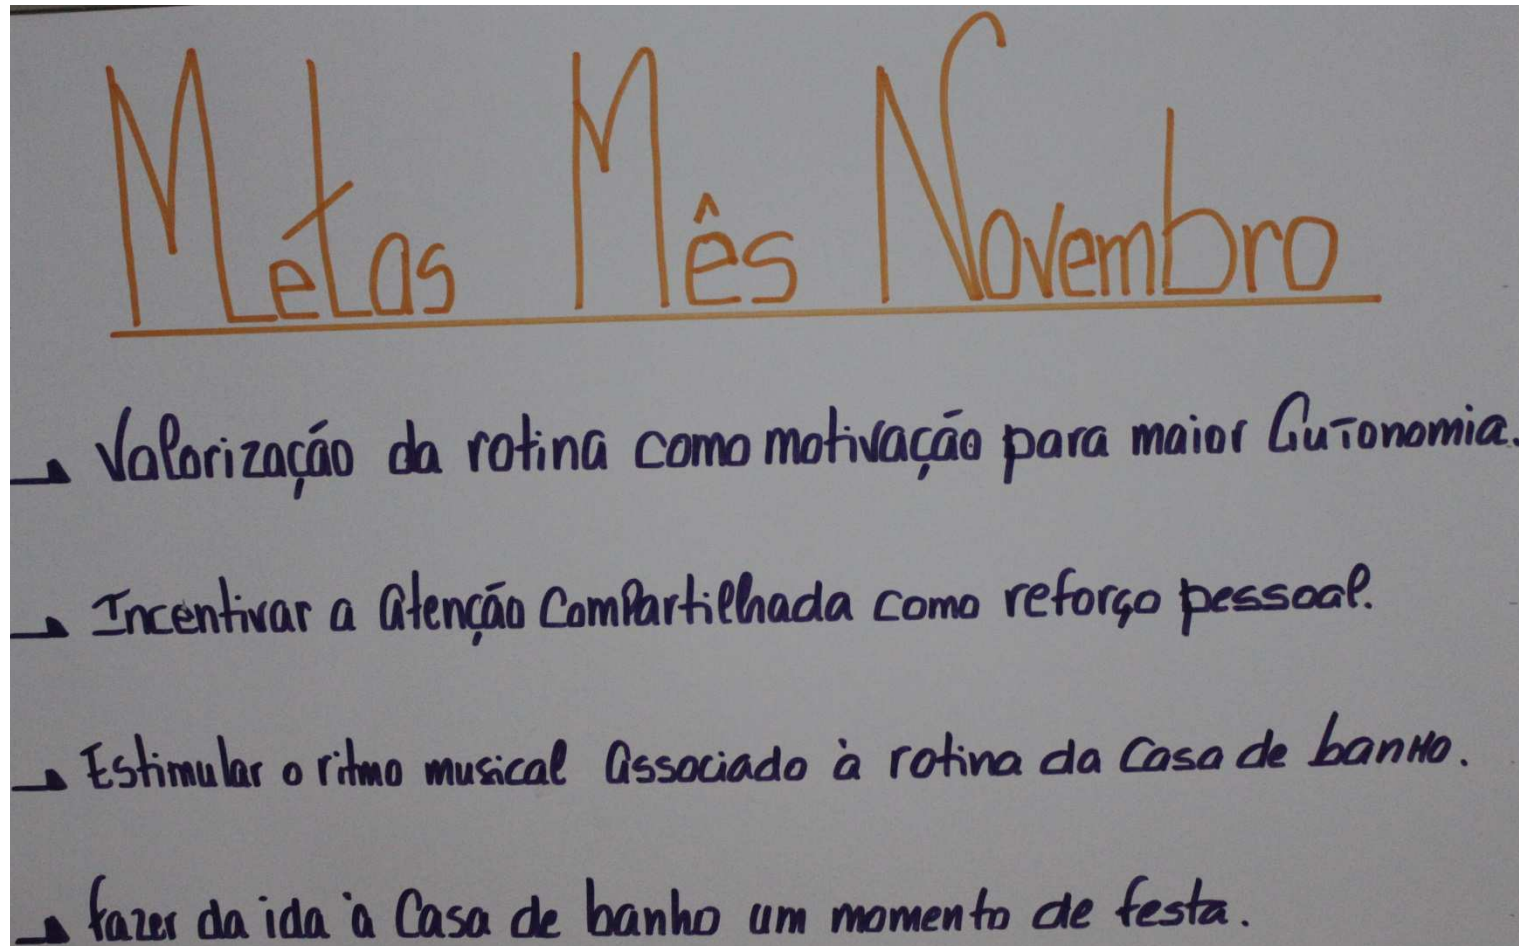 Metas Mês Novembro
→ Valorização da rotina como motivação para maior Autonomia.
→ Incentivar a atenção compartilhada como reforço pessoal.
→ Estimular o ritmo musical associado à rotina da Casa de banho.
→ fazer da ida à Casa de banho um momento de festa.